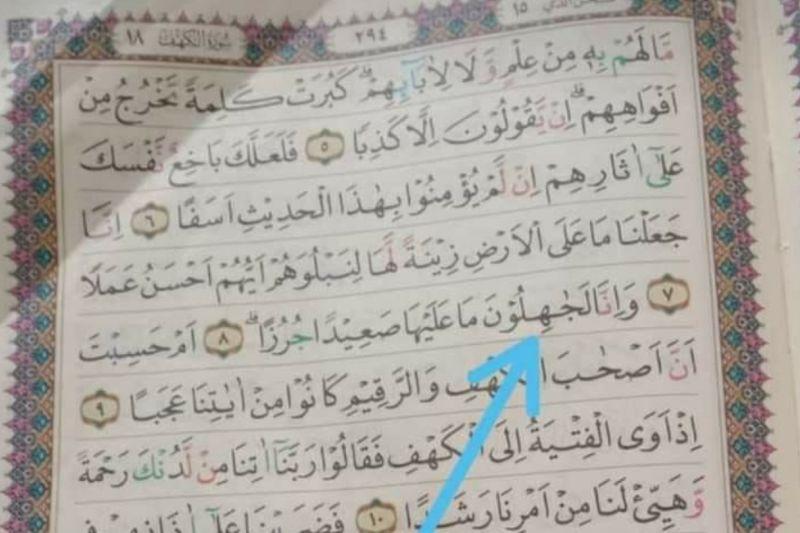 الذي ١٥
٢٩٤
سُوْرَةُ الْكَهْفِ ١٨
مَّا لَهُمْ بِهٖ مِنْ عِلْمٍ وَّلَا لِاٰبَاۤىِٕهِمْۗ كَبُرَتْ كَلِمَةً تَخْرُجُ مِنْ
اَفْوَاهِهِمْۗ اِنْ يَّقُوْلُوْنَ اِلَّا كَذِبًا ٥ فَلَعَلَّكَ بَاخِعٌ نَّفْسَكَ
عَلٰٓى اٰثَارِهِمْ اِنْ لَّمْ يُؤْمِنُوْا بِهٰذَا الْحَدِيْثِ اَسَفًا ٦ اِنَّا
جَعَلْنَا مَا عَلَى الْاَرْضِ زِيْنَةً لَّهَا لِنَبْلُوَهُمْ اَيُّهُمْ اَحْسَنُ عَمَلًا
٧ وَاِنَّا لَجٰهِلُوْنَ مَا عَلَيْهَا صَعِيْدًا جُرُزًاۗ ٨ اَمْ حَسِبْتَ
اَنَّ اَصْحٰبَ الْكَهْفِ وَالرَّقِيْمِ كَانُوْا مِنْ اٰيٰتِنَا عَجَبًا ٩
اِذْ اَوَى الْفِتْيَةُ اِلَى الْكَهْفِ فَقَالُوْا رَبَّنَآ اٰتِنَا مِنْ لَّدُنْكَ رَحْمَةً
وَّهَيِّئْ لَنَا مِنْ اَمْرِنَا رَشَدًا ١٠ فَضَرَبْنَا عَلٰٓى اٰذَانِهِمْ فِى